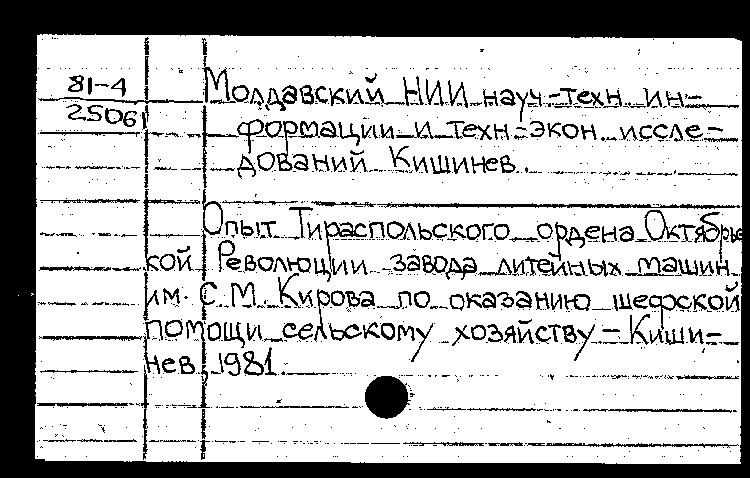 81-4
25061
Молдавский НИИ науч-техн ин-
формации и техн-экон иссле-
дований Кишинев.
Опыт Тираспольского ордена Октябрьс
кой Революции завода литейных машин
им. С.М. Кирова по оказанию шефской
помощи сельскому хозяйству - Киши-
нев, 1981.